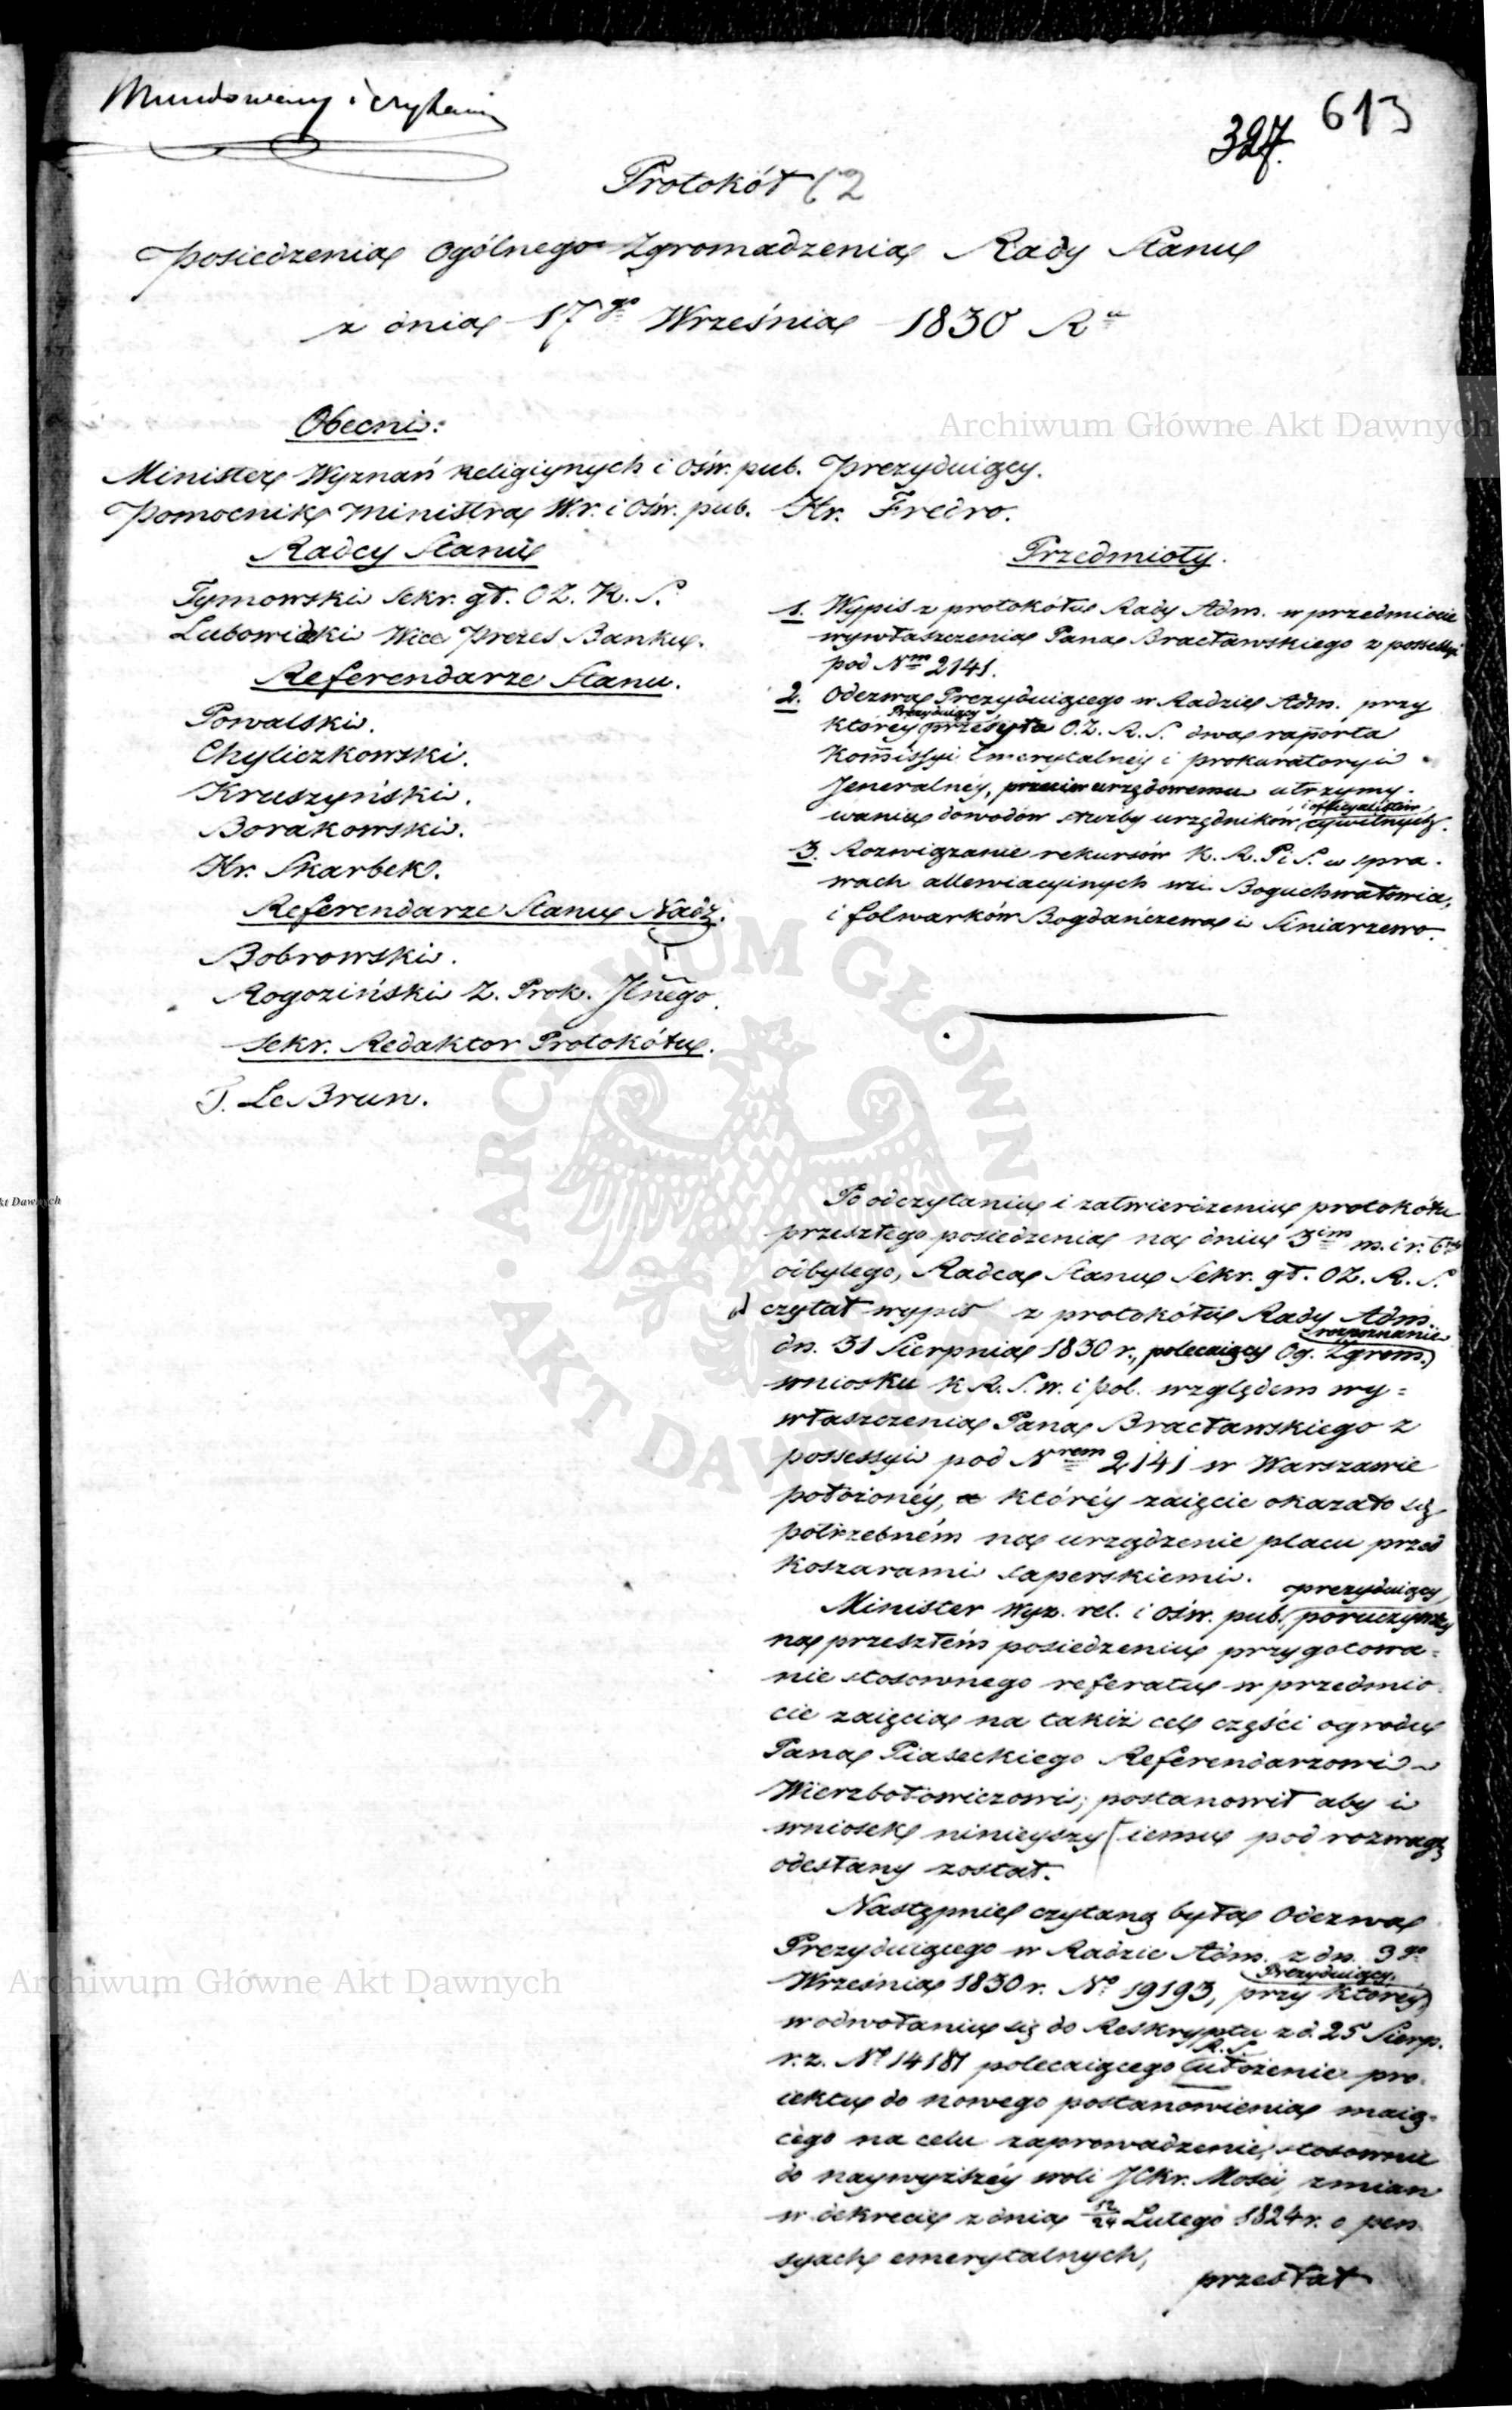 Mundowany i czytany
327. 613
Protokół 62
Posiedzenia Ogólnego Zgromadzenia Rady Stanu
z dnia 17go Września 1830 Ru
Obecni:
Minister Wyznań Religiynych i Ośw. pub. Prezyduiący.
Pomocnik Ministra W.r. i Ośw. pub. Hr. Fredro.
Radcy Stanu
Tymowski Sekr. gł. O Z. R. S.
Lubowidzki Wice Prezes Banku.
Referendarze Stanu.
Powalski.
Chyliczkowski.
Kruszyński.
Borakowski.
Hr. Skarbek.
Referendarze Stanu Nadz.
Bobrowski.
Rogoziński Z. Prok. Jlnego.
Sekr. Redaktor Protokółu.
T. Le Brun.
Przedmioty.
1. Wypis z protokółu Rady Adm. w przedmiocie
wywłaszczenia Pana Bracławskiego z possessyi
pod Nm 2141.
2. Odezwa Prezyduiącego w Radzie Adm. przy
Prezyduiący
którey przesyła O.Z. R. S. dwa raporta
Kommissyi Emerytalnéy i prokuratoryi
Jeneralnéy, przeciw urzędowemu utrzymy-
i officyalistów
wania dowodów służby urzędników cywilnych.
3. Rozwiązanie rekursów K. R. P. i S. w spra-
wach allewiacyinych wsi Boguchwałowia,
i folwarków Bogdańczewa i Siniarzewo.
Po odczytaniu i zatwierdzeniu protokółu
przeszłego posiedzenia na dniu 3im m. i r. b.
odbytego, Radca Stanu Sekr. gł. OZ. R. S.
czytał wypis z protokółu Rady Adm.
rozpoznanie
dn. 31 Sierpnia 1830 r., polecaiący Og. Zgrom.
wniosku K R. S. w. i pol. względem wy=
właszczenia Pana Bracławskiego z
possessyi pod Nrem 2141 w Warszawie
położonéy, któréy zaięcie okazało się
potrzebném na urządzenie placu przed
koszarami saperskiemi.
prezyduiący,
Minister Wyz. rel. i ośw. pub., poruczywszy
na przeszłém posiedzeniu przygotowa=
nie stosownego referatu w przedmio-
cie zaięcia na takiż cel części ogrodu
Pana Piaseckiego Referendarzowi
Wierzbołowiczowi; postanowił aby i
wniosek ninieyszy iemu pod rozwagę
odesłany został.
Następnie czytaną była Odezwa
Prezyduiącego w Radzie Adm. z dn. 3go
Prezyduiący,
Września 1830 r. No 19193, przy którey
w odwołaniu się do Reskryptu z d. 25 Sierp.
R. S.
r. z. No 14181 polecaiącego ułożenie pro-
iektu do nowego postanowienia maią-
cego na celu zaprowadzenie, stosownie
do naywyższéy woli JCKr. Mości, zmian
w dekrecie z dnia 12/24 Lutego 1824 r. o pen-
syach emerytalnych,
przesłał
Archiwum Główne Akt Dawnych
Archiwum Główne Akt Dawnych
kt Dawnych
ARCHIWUM GŁÓWNE AKT DAWNYCH